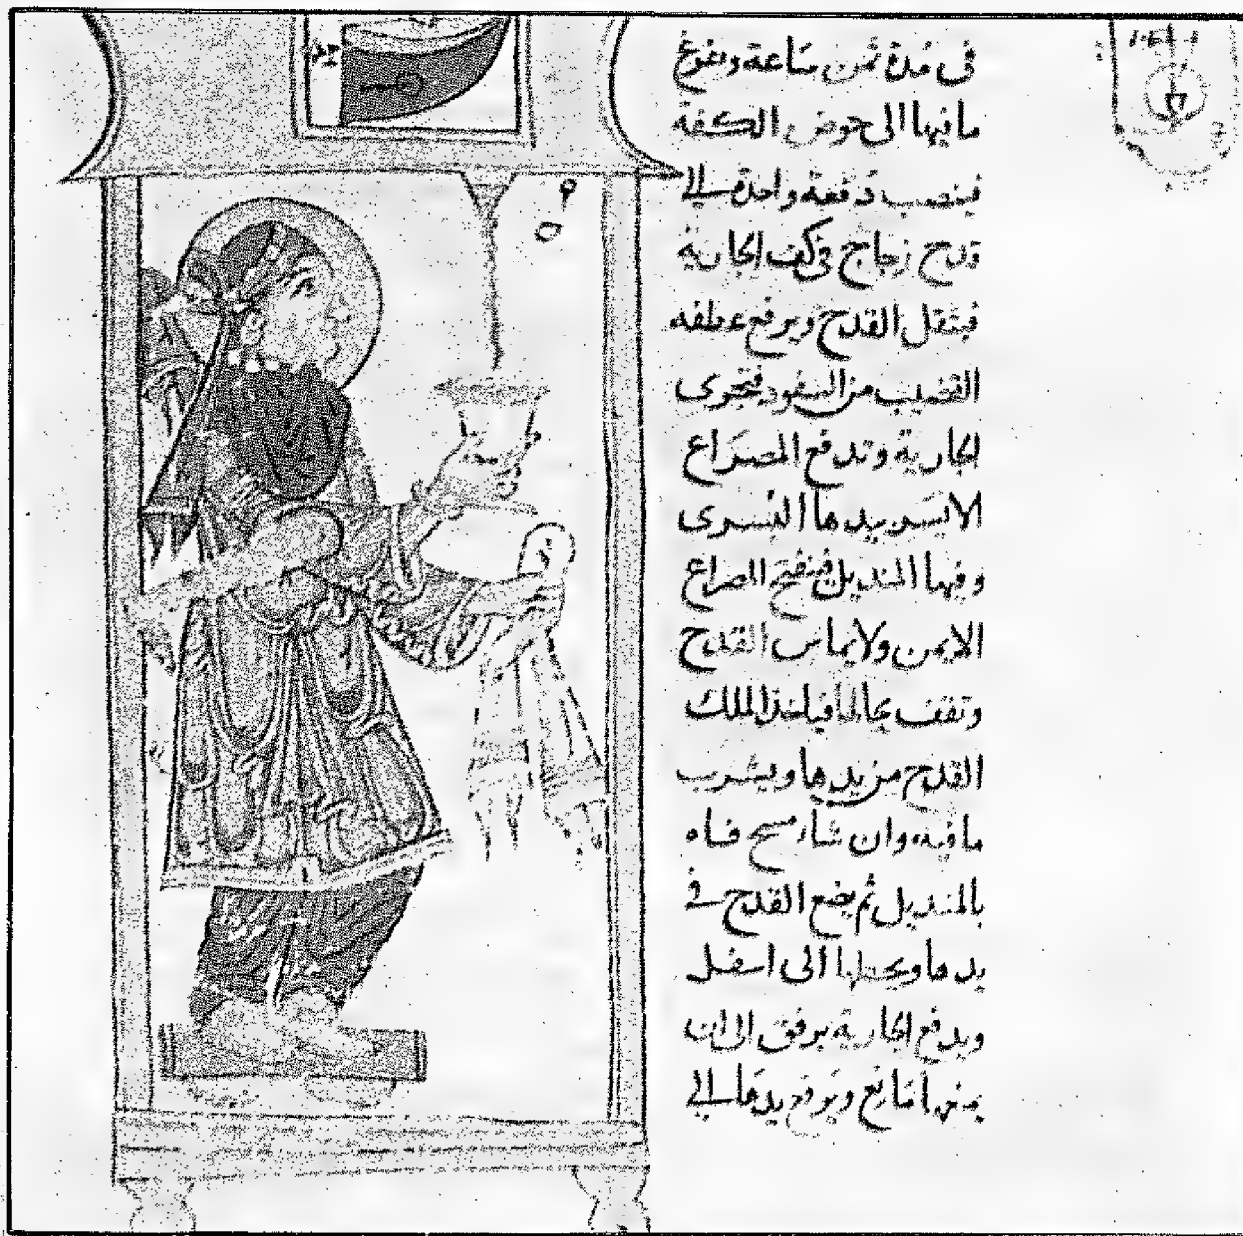 فى مدة ثمن ساعة ويفرغ
ما فيها الى حوض الكفة
فينصب دفعة واحدة الى
قدح زجاج فى كف الجارية
فيثقل القدح ويرفع عطفه
القضيب من السفود فتجرى
الجارية وتدفع المصراع
الايسر بيدها اليسرى
وفيها المنديل فينفتح المصراع
الايمن ولا يماس القدح
وتقف بحالها فياخذ الملك
القدح من يدها ويشرب
ما فيه وان شاء مسح فاه
بالمنديل ثم يضع القدح فى
يدها ويحطها الى اسفل
ويدفع الجارية برفق الى ان
امتانع ويرفع يدها الى